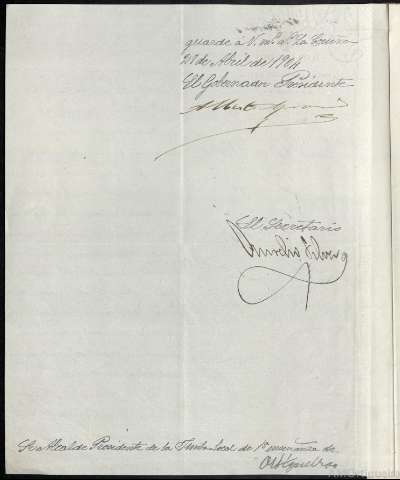 guarde á V. m.s a.s La Coruña
21 de Abril de 1904
El Gobernador Presidente
Alberto
El Secretario
Aurelio
Sr. Alcalde Presidente de la Junta local de 1ª enseñanza de
Ortigueira